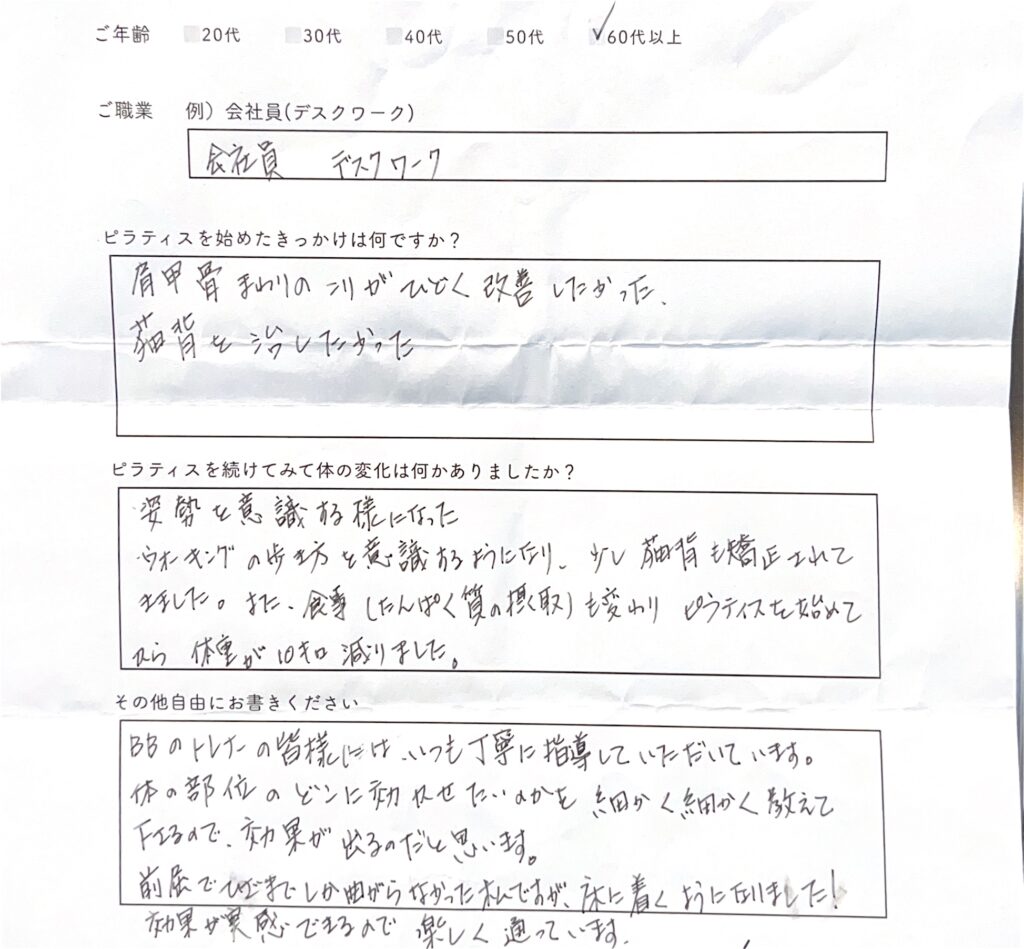 ご年齢 20代 30代 40代 50代 60代以上
ご職業 例）会社員(デスクワーク)
会社員 デスクワーク
ピラティスを始めたきっかけは何ですか？
肩甲骨まわりのコリがひどく改善したかった、
猫背を治したかった
ピラティスを続けてみて体の変化は何かありましたか？
姿勢を意識する様になった
ウォーキングの歩き方を意識するようになり、少し猫背も矯正されて
きました。また、食事(たんぱく質の摂取)も変わりピラティスを始めて
から体重が10キロ減りました。
その他自由にお書きください
BBのトレナーの皆様には、いつも丁寧に指導していただいています。
体の部位のどこに効かせたいのかを細かく細かく教えて
下さるので、効果が出るのだと思います。
前屈でひざまでしか曲がらなかったんですが、床に着くように成りました！
効果が実感できるので楽しく通っています。